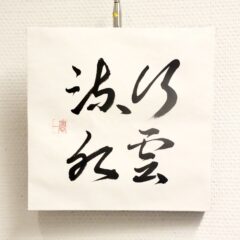 行雲
流水